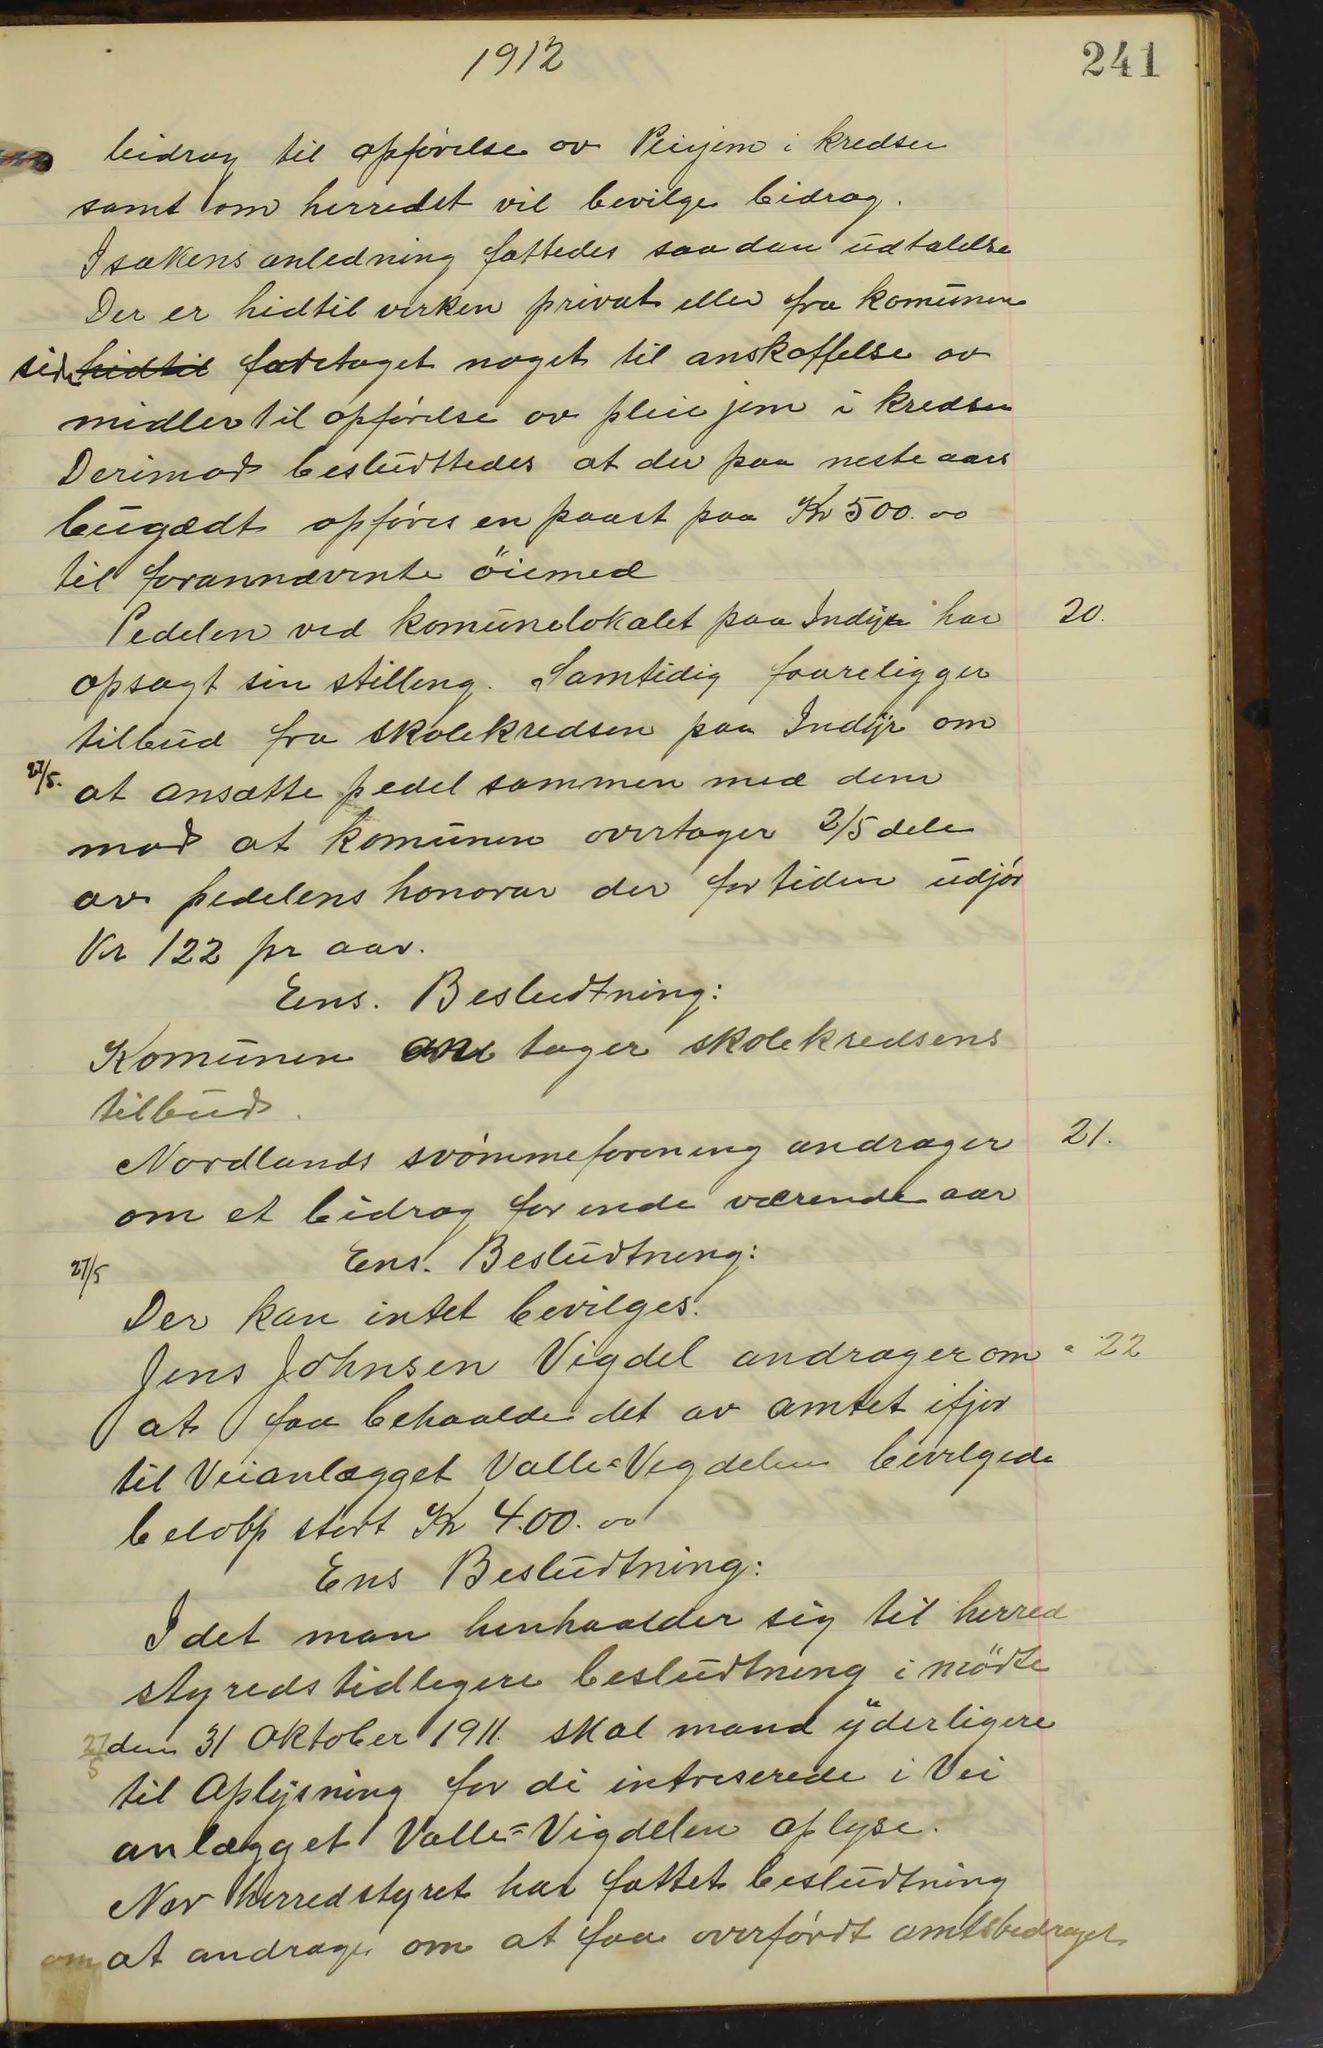 1912
241
bidrag til opførelse av Pleiejem i kredsen
samt om herredet vil bevilge bidrag.
I sakens anledning fattedes saadan udtalelse
Der er hidtil verken privat eller fra komunen
side hidtil foretaget noget til anskaffelse av
midler til opførelse av pleiejem i kredsen
Derimod besludttedes at der paa neste aars
bugædt opføres en paast paa Kr 500.00
til forannævnte öiemed
Pedelen ved komunelokalet paa Indyr har 20.
opsagt sin stilling. Samtidig faareligger
tilbud fra skolekredsen paa Indyr om
27/5. at ansætte pedel sammen med dem
mod at komunen overtager 2/5 dele
av pedelens honorar der for tiden udjør
Kr 122 pr aar.
Eens. Besludtning:
Komunen an tager skolekredsens
tilbud.
Nordlands svømmeforening andrager 21.
om et bidrag for inde værende aar
27/5 Ens. Besludtning:
Der kan intet bevilges.
Jens Johnsen Vigdel andrager om 22
at faa behaalde det av amtet ifjor
til Veianlægget Valle=Vigdelen bevilgede
beløbp stort Kr 400.00
Ens Besludtning:
I det man henhaalder sig til herred
styreds tidligere besludtning i mödte
27/5 den 31 Oktober 1911. skal mand yderligere
til Oplysning for di intreserede i Vei
anlægget Valle=Vigdelen oplyse.
Nor herredstyret har fattet besludtning
om at andrage om at faa overført amtsbedraget